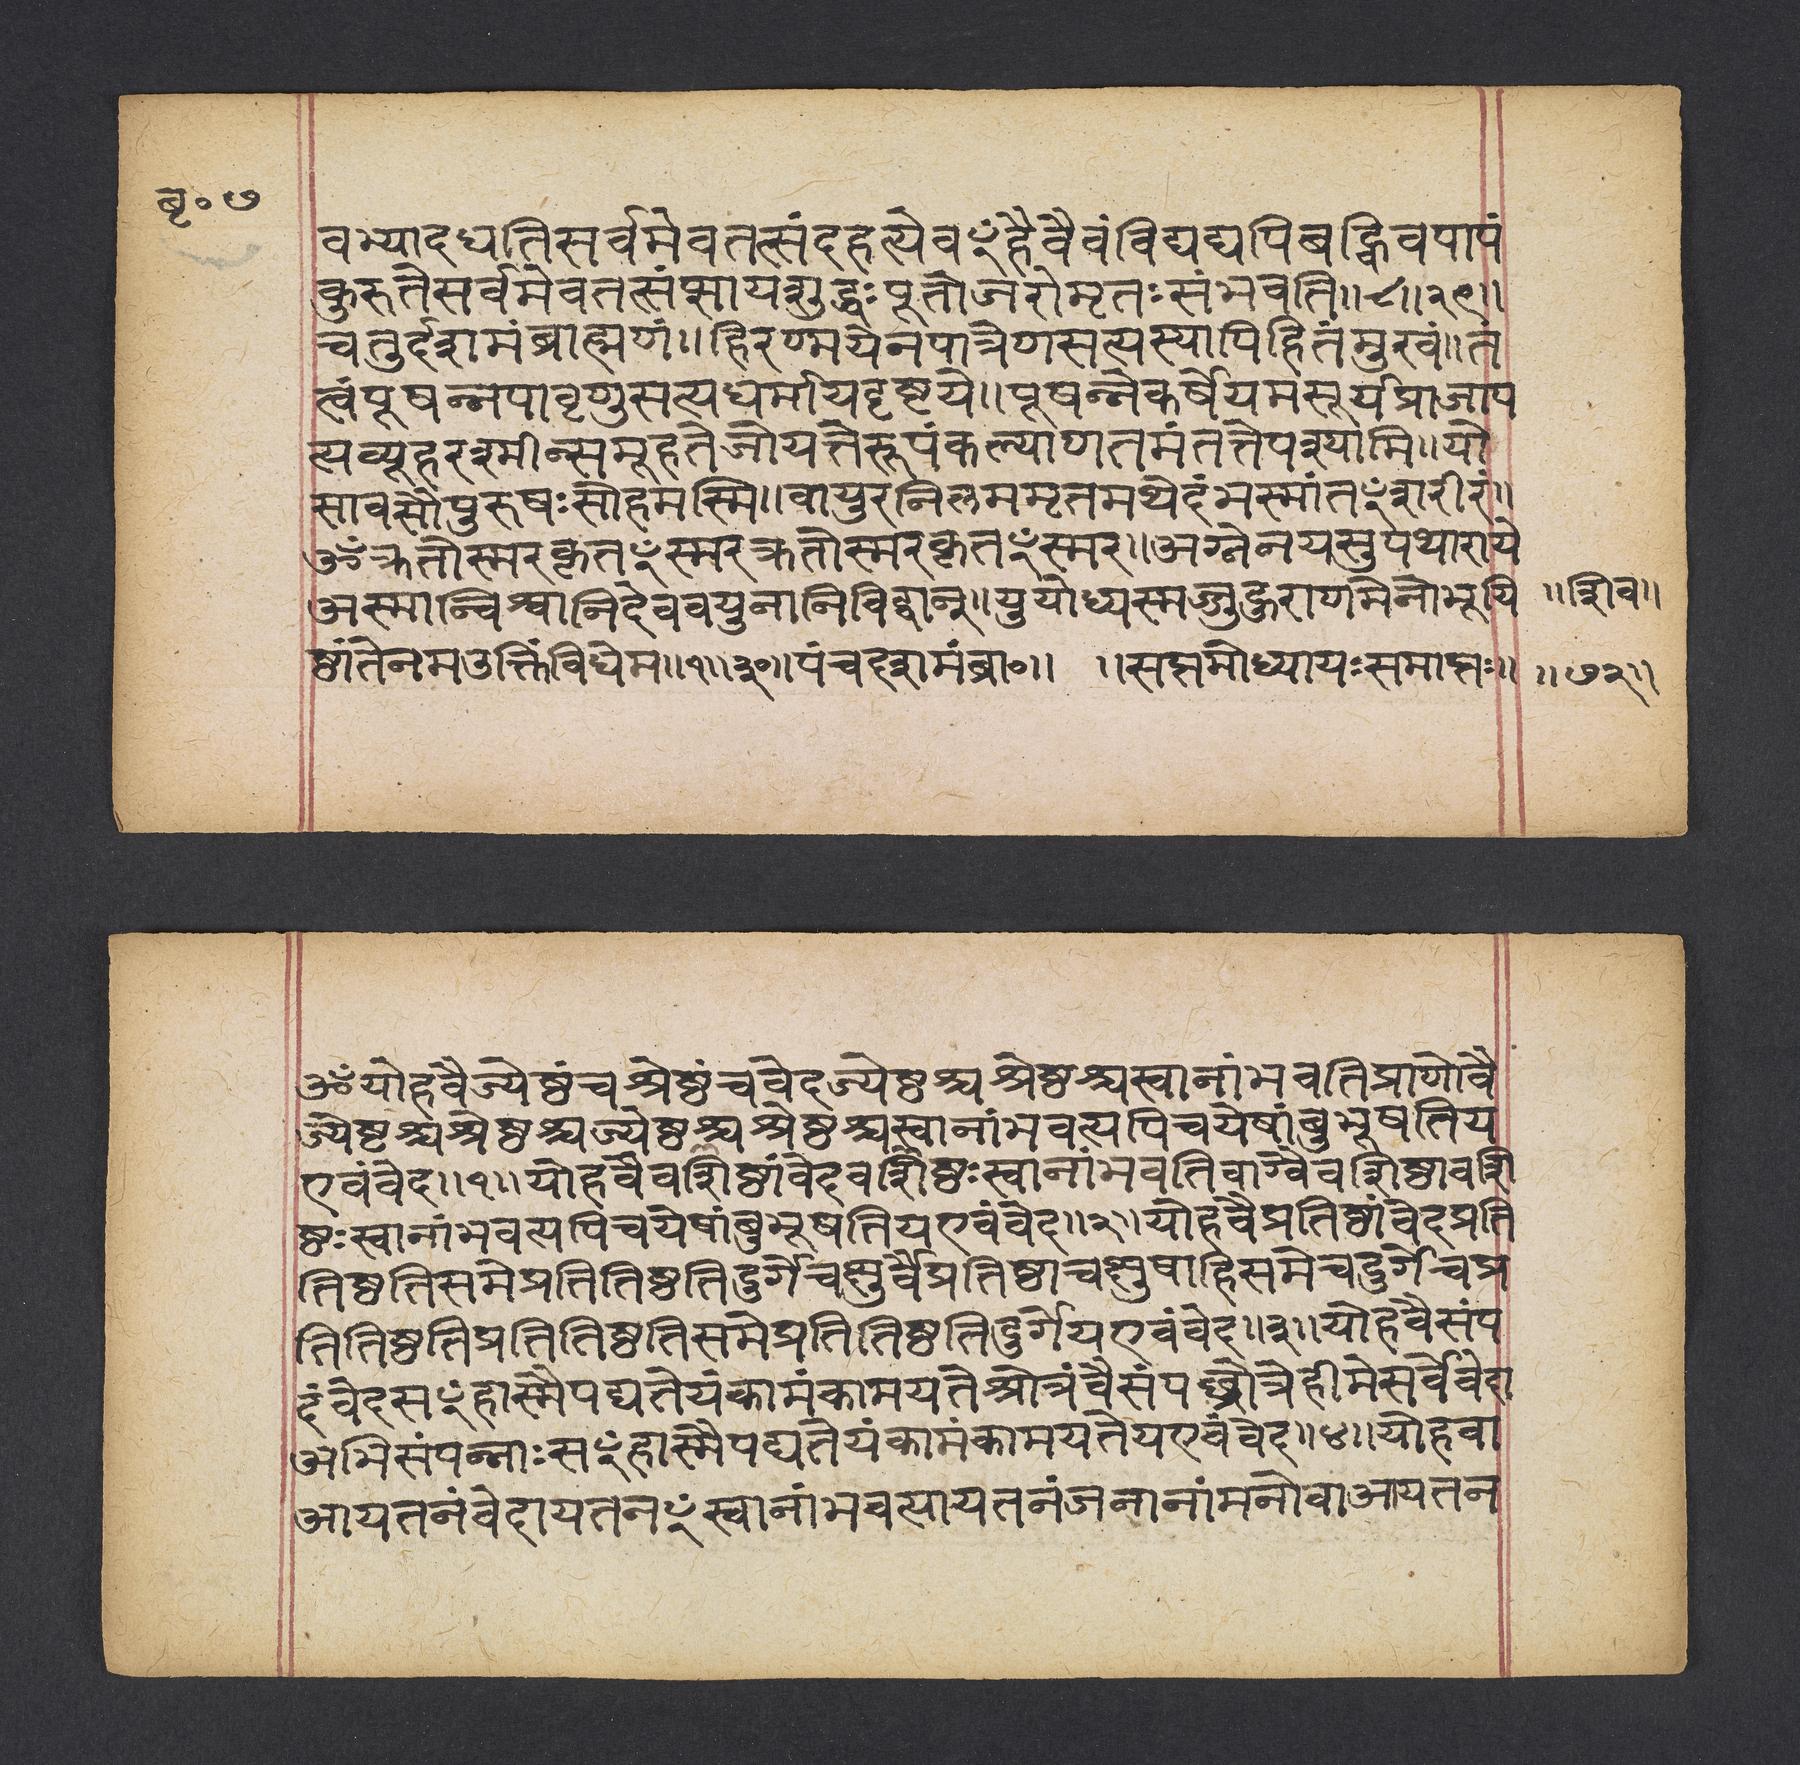 बृ० ७
वभ्यादधतिसर्वमेवतत्संदहत्येवꣳहैवैवंविद्यद्यपिबह्विवपापं
कुरुतेसर्वमेवतत्संप्सायशुद्धःपूतोजरोमृतःसंभवति॥८॥२९॥
चतुर्दशमंब्राह्मणं॥हिरण्मयेनपात्रेणसत्यस्यापिहितंमुखं॥तं
त्वंपूषन्नपावृणुसत्यधर्मायदृष्टये॥पूषन्नेकर्षेयमसूर्यप्राजाप
त्यव्यूहरश्मीन्समूहतेजोयत्तेरूपंकल्याणतमंतत्तेपश्यामि॥यो
सावसौपुरुषःसोहमस्मि॥वायुरनिलममृतमथेदंभस्मांतꣳशरीरं॥
ॐक्रतोस्मरकृतꣳस्मरक्रतोस्मरकृतꣳस्मर॥अग्नेनयसुपथाराये
अस्मान्विश्वानिदेववयुनानिविद्वान्॥युयोध्यस्मज्जुहुराणमेनोभूयि
॥शिव॥
ष्ठांतेनमउक्तिंविधेम॥१॥३०॥पंचदशमंब्रा०॥ ॥सप्तमोध्यायःसमाप्तः॥
॥७२॥
ॐयोहवैज्येष्ठंचश्रेष्ठंचवेदज्येष्ठश्चश्रेष्ठश्चस्वानांभवतिप्राणोवै
ज्येष्टश्चश्रेष्ठश्चज्येष्ठश्चश्रेष्ठश्चस्वानांभवत्यपिचयेषांबुभूषतिय
एवंवेद॥१॥योहवैवशिष्ठांवेदवशिष्ठःस्वानांभवतिवाग्वैवशिष्ठावशि
ष्ठःस्वानांभवत्यपिचयेषांबुभूषतियएवंवेद॥२॥योहवैप्रतिष्ठांवेदप्रति
तिष्ठतिसमेप्रतितिष्ठतिदुर्गेचक्षुर्वैप्रतिष्ठाचक्षुषाहिसमेचदुर्गेचप्र
तितिष्ठतिप्रतितिष्ठतिसमेप्रतितिष्ठतिदुर्गेयएवंवेद॥३॥योहवैसंप
दंवेदसꣳहास्मैपद्यतेयंकामंकामयतेश्रोत्रंवैसंपछ्रोत्रेहीमेसर्वेवेदा
अभिसंपन्नाःसꣳहास्मैपद्यतेयंकामंकामयतेयएवंवेद॥४॥योहवा
आयतनंवेदायतनꣳस्वानांभवत्यायतनंजनानांमनोवाआयतन